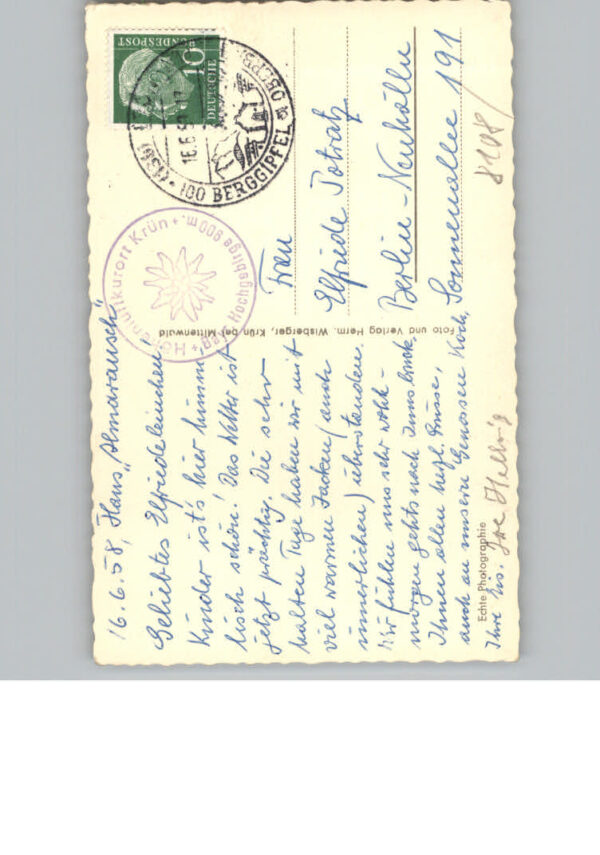 16.6.58, Haus „Almarausch“
Geliebtes Elfriedeleinchen,
Kinder ist's hier himm-
lisch schön! Das Wetter ist
jetzt prächtig. Die sehr
kalten Tage haben wir mit
viel warmen Jacken (auch
innerlichen) überstanden.
Wir fühlen uns sehr wohl –
morgen gehts nach Innsbruck.
Ihnen allen herzl. Grüsse,
auch an unsere Genossen Koch,
Ihre
Echte Photographie
Foto und Verlag Herm. Wisberger, Krün bei Mittenwald
Höhenluftkurort Krün
900m.
Hochgebirge
DEUTSCHE
BUNDESPOST
10
16.6.58
100 BERGGIPFEL
Frau
Elfriede Potratz
Berlin-Neukölln
Sonnenallee 191